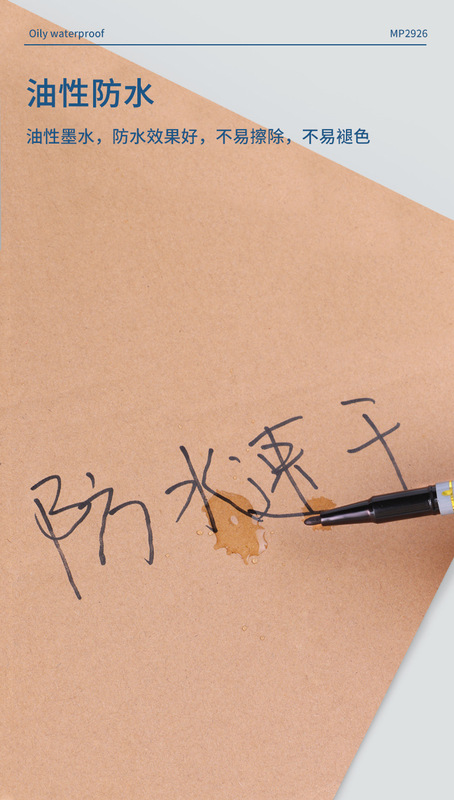 Oily waterproof MP2926
油性防水
油性墨水，防水效果好，不易擦除，不易褪色
防水速干